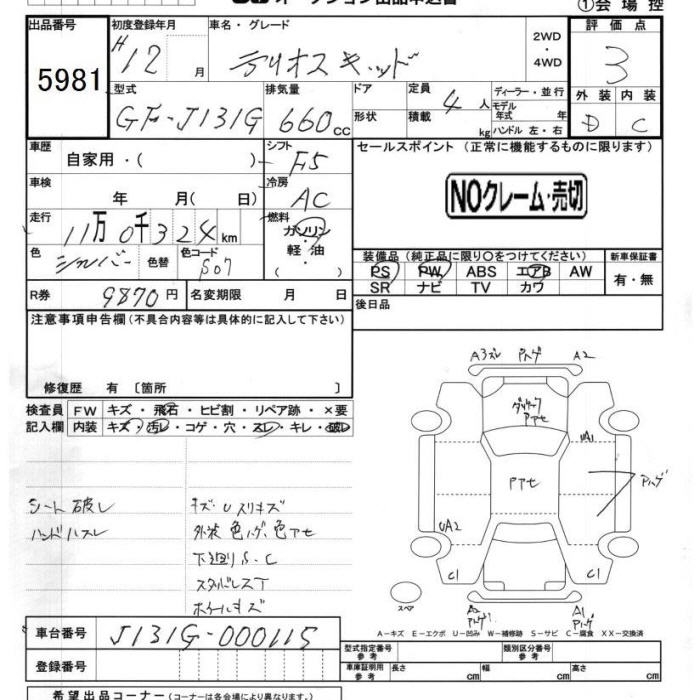 オークション出品申込書
①会場控
出品番号 初度登録年月 車名・グレード 2WD ・ 4WD 評価点
5981 H12 月 テリオスキッド 3
型式 排気量 ドア 定員 ディーラー・並行 外装 内装
GF-J131G 660cc 4人 モデル年式 年
形状 積載 kg ハンドル 左・右 D C
車歴 シフト セールスポイント (正常に機能するものに限ります)
自家用・( ) F5
車検 冷房 NOクレーム・売切
年 月( 日) AC
走行 燃料
11万0千324km ガソリン
色 色替 色コード 軽油 装備品 (純正品に限り○をつけてください) 新車保証書
シルバー S07 ( ) PS PW ABS エアB AW 有・無
R券 9870円 名変期限 月 日 SR ナビ TV カワ
注意事項申告欄(不具合内容等は具体的に記入して下さい) 後日品
修復歴 有 [箇所 ]
検査員 FW キズ・飛石・ヒビ割・リペア跡・×要
記入欄 内装 キズ・汚レ・コゲ・穴・スレ・キレ・破レ
A3ズレ アトハゲ A2
アアセ
UA1
アアセ
アハゲ
UA2
C1 C1
A2 A1
アハゲ
スペア
シート破レ キズ・Uスリキズ
ハンドルスレ 外装色ハゲ、色アセ
下廻りS・C
スタッドレスT
ホイールキズ
A-キズ E-エクボ U-凹み W-補修跡 S-サビ C-腐食 XX-交換済
車台番号 J131G-000115
型式指定番号 参考 類別区分番号 参考
登録番号 車庫証明用 参考 長さ cm 幅 cm 高さ cm
希望出品コーナー(コーナーは各会場により異なります。)